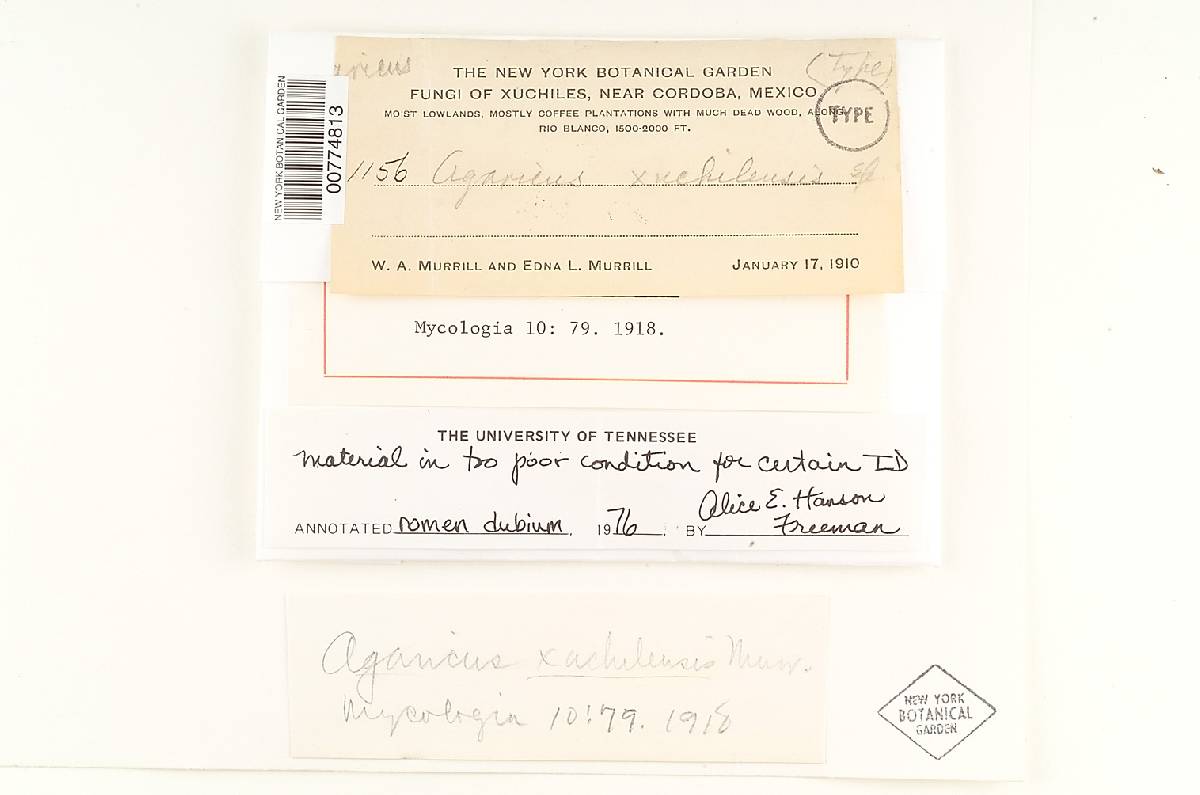 aricus
(Type)
THE NEW YORK BOTANICAL GARDEN
FUNGI OF XUCHILES, NEAR CORDOBA, MEXICO
MOIST LOWLANDS, MOSTLY COFFEE PLANTATIONS WITH MUCH DEAD WOOD, ALONG
RIO BLANCO, 1500-2000 FT.
TYPE
1156 Agaricus xuchilensis
W. A. MURRILL AND EDNA L. MURRILL JANUARY 17, 1910
NEW YORK BOTANICAL GARDEN
00774813
Mycologia 10: 79. 1918.
THE UNIVERSITY OF TENNESSEE
material in too poor condition for certain ID
ANNOTATED nomen dubium, 1976. BY Alice E. Hanson
Freeman
Agaricus xuchilensis Murr.
Mycologia 10:79. 1918
NEW YORK
BOTANICAL
GARDEN